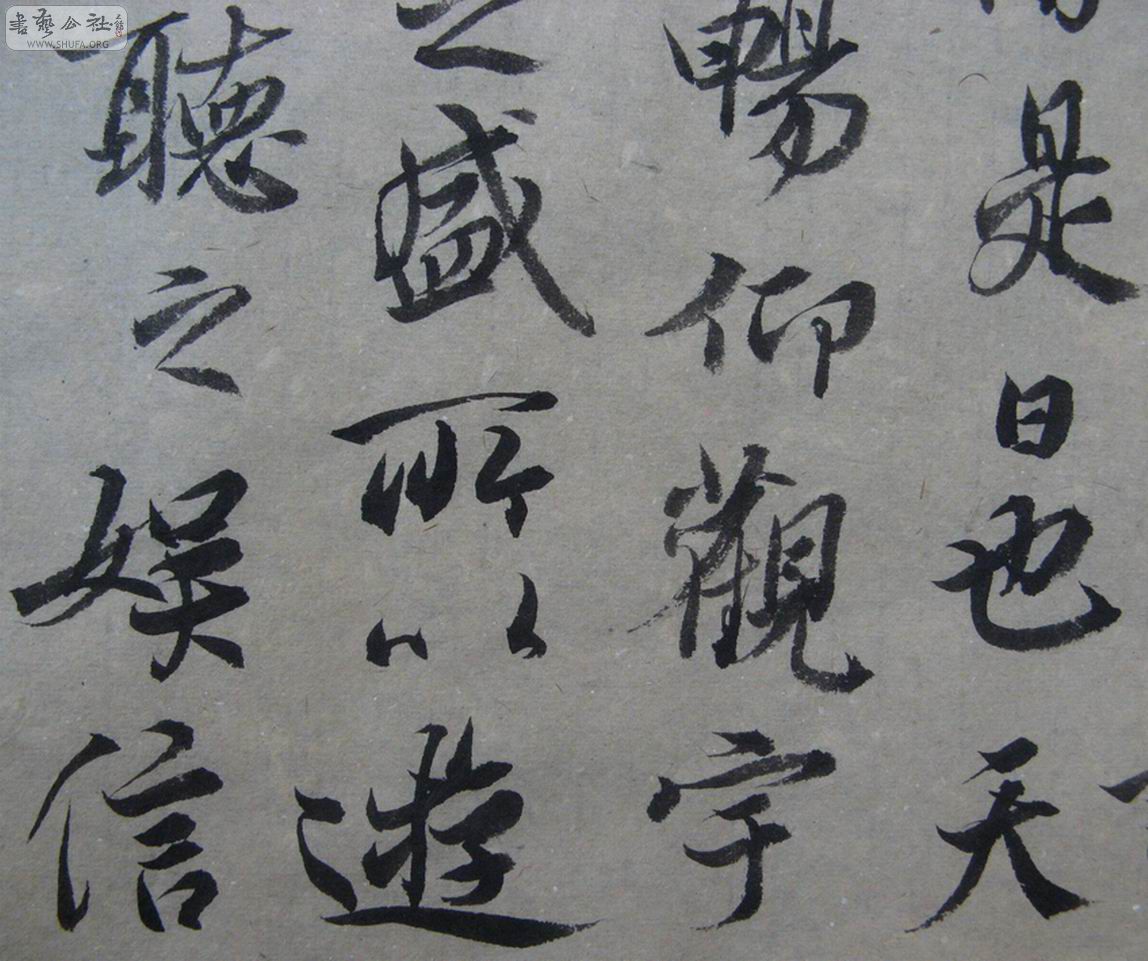 是日也天
暢仰觀宇
之盛所以遊
聽之娛信
書藝公社
WWW.SHUFA.ORG